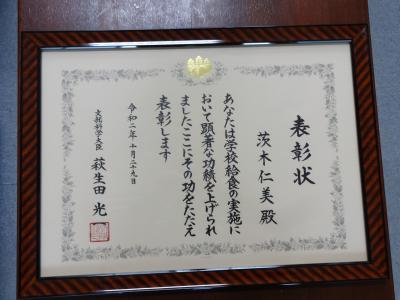 表彰状
茨木仁美 殿
あなたは学校給食の実施に
おいて顕著な功績を上げられ
ましたここにその功をたたえ
表彰します
令和二年十月二十九日
文部科学大臣 萩生田光